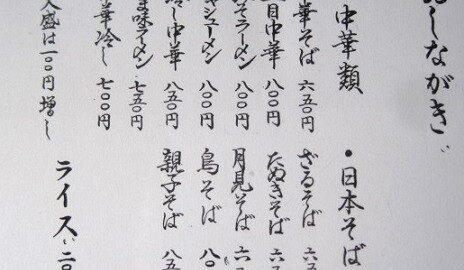 おしながき
中華類
華そば 六五〇円
目中華 八〇〇円
そラーメン 八〇〇円
ャシューメン 八〇〇円
冷し中華 八五〇円
味ラーメン 七五〇円
華冷し 七〇〇円
大盛は一〇〇円増し
・日本そば
ざるそば 六
たぬきそば 六
月見そば 六
鳥そば 八〇
親子そば 八五
ライス 二〇